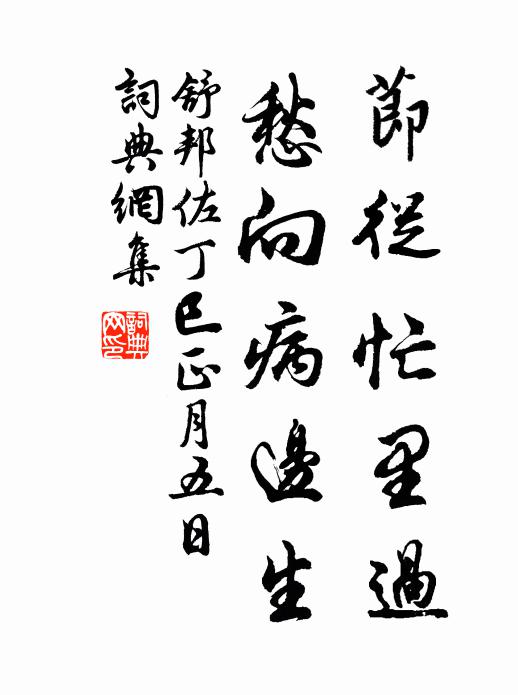 節從忙里過
愁向病邊生
舒邦佐丁巳正月五日
詞典網集
詞典网印